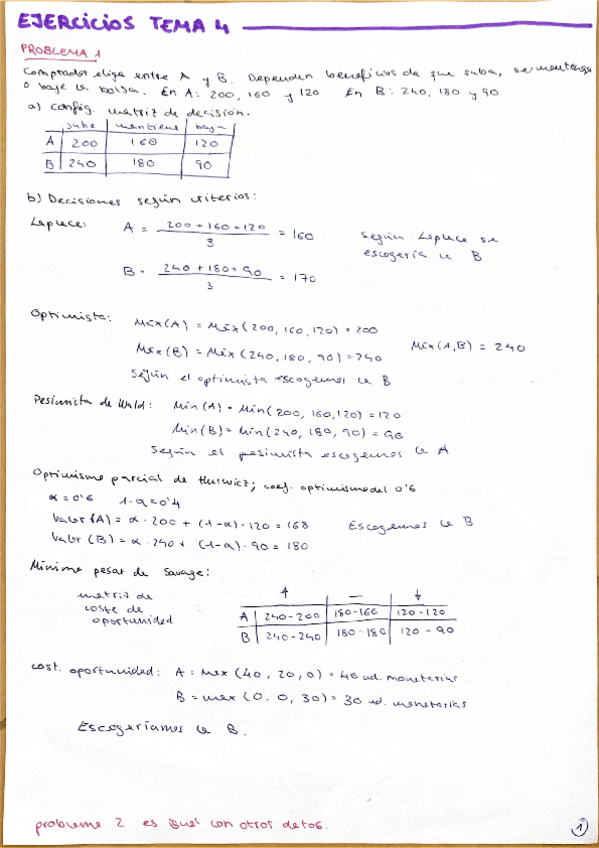 EJERCICIOS TEMA 4
PROBLEMA 1
Comprador elige entre A y B. Dependen beneficios de que suba, se mantenga
o baje la bolsa. En A: 200, 160 y 120 En B: 240, 180 y 90
a) config. matriz de decisión.
sube mantiene baja
A 200 160 120
B 240 180 90
b) Decisiones según criterios:
Laplace: A = (200 + 160 + 120) / 3 = 160 según Laplace se
escogería la B
B = (240 + 180 + 90) / 3 = 170
Optimista: Máx(A) = Máx(200, 160, 120) = 200
Máx(B) = Máx(240, 180, 90) = 240 Máx(A,B) = 240
Según el optimista escogemos la B
Pesimista de Wald: Min(A) = Min(200, 160, 120) = 120
Min(B) = Min(240, 180, 90) = 90
Según el pesimista escogemos la A
Optimismo parcial de Hurwicz; coef. optimismo del 0'6
α = 0'6 1-α = 0'4
Valor (A) = α · 200 + (1-α) · 120 = 168 Escogemos la B
Valor (B) = α · 240 + (1-α) · 90 = 180
Mínimo pesar de Savage:
matriz de
coste de
oportunidad
↑ — ↓
A 240-200 180-160 120-120
B 240-240 180-180 120-90
cost. oportunidad: A = max (40, 20, 0) = 40 ud. monetarias
B = max (0, 0, 30) = 30 ud. monetarias
Escogeríamos la B.
problema 2 es igual con otros datos.
1